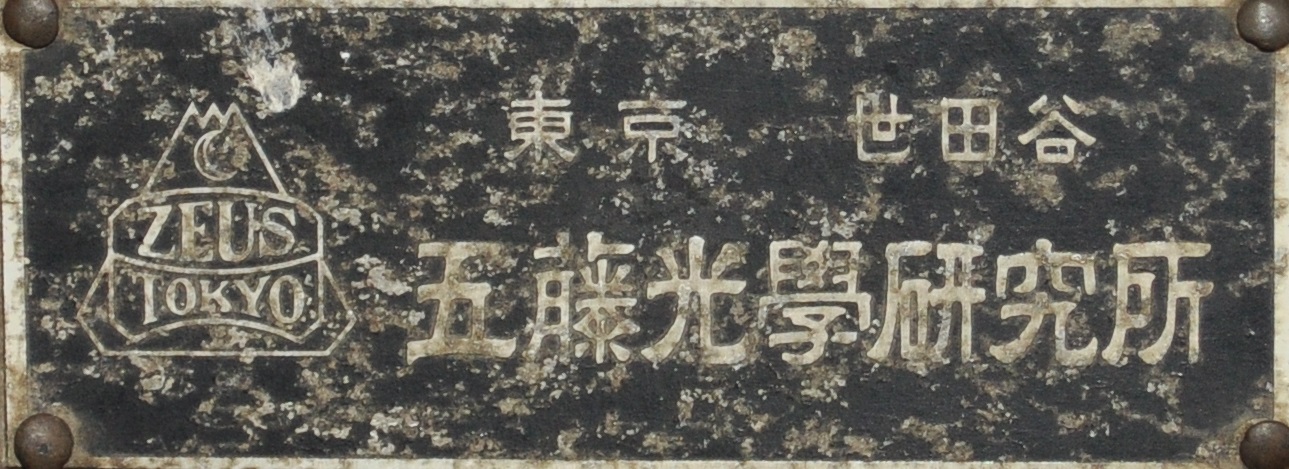 東京 世田谷
ZEUS
TOKYO
五藤光學研究所